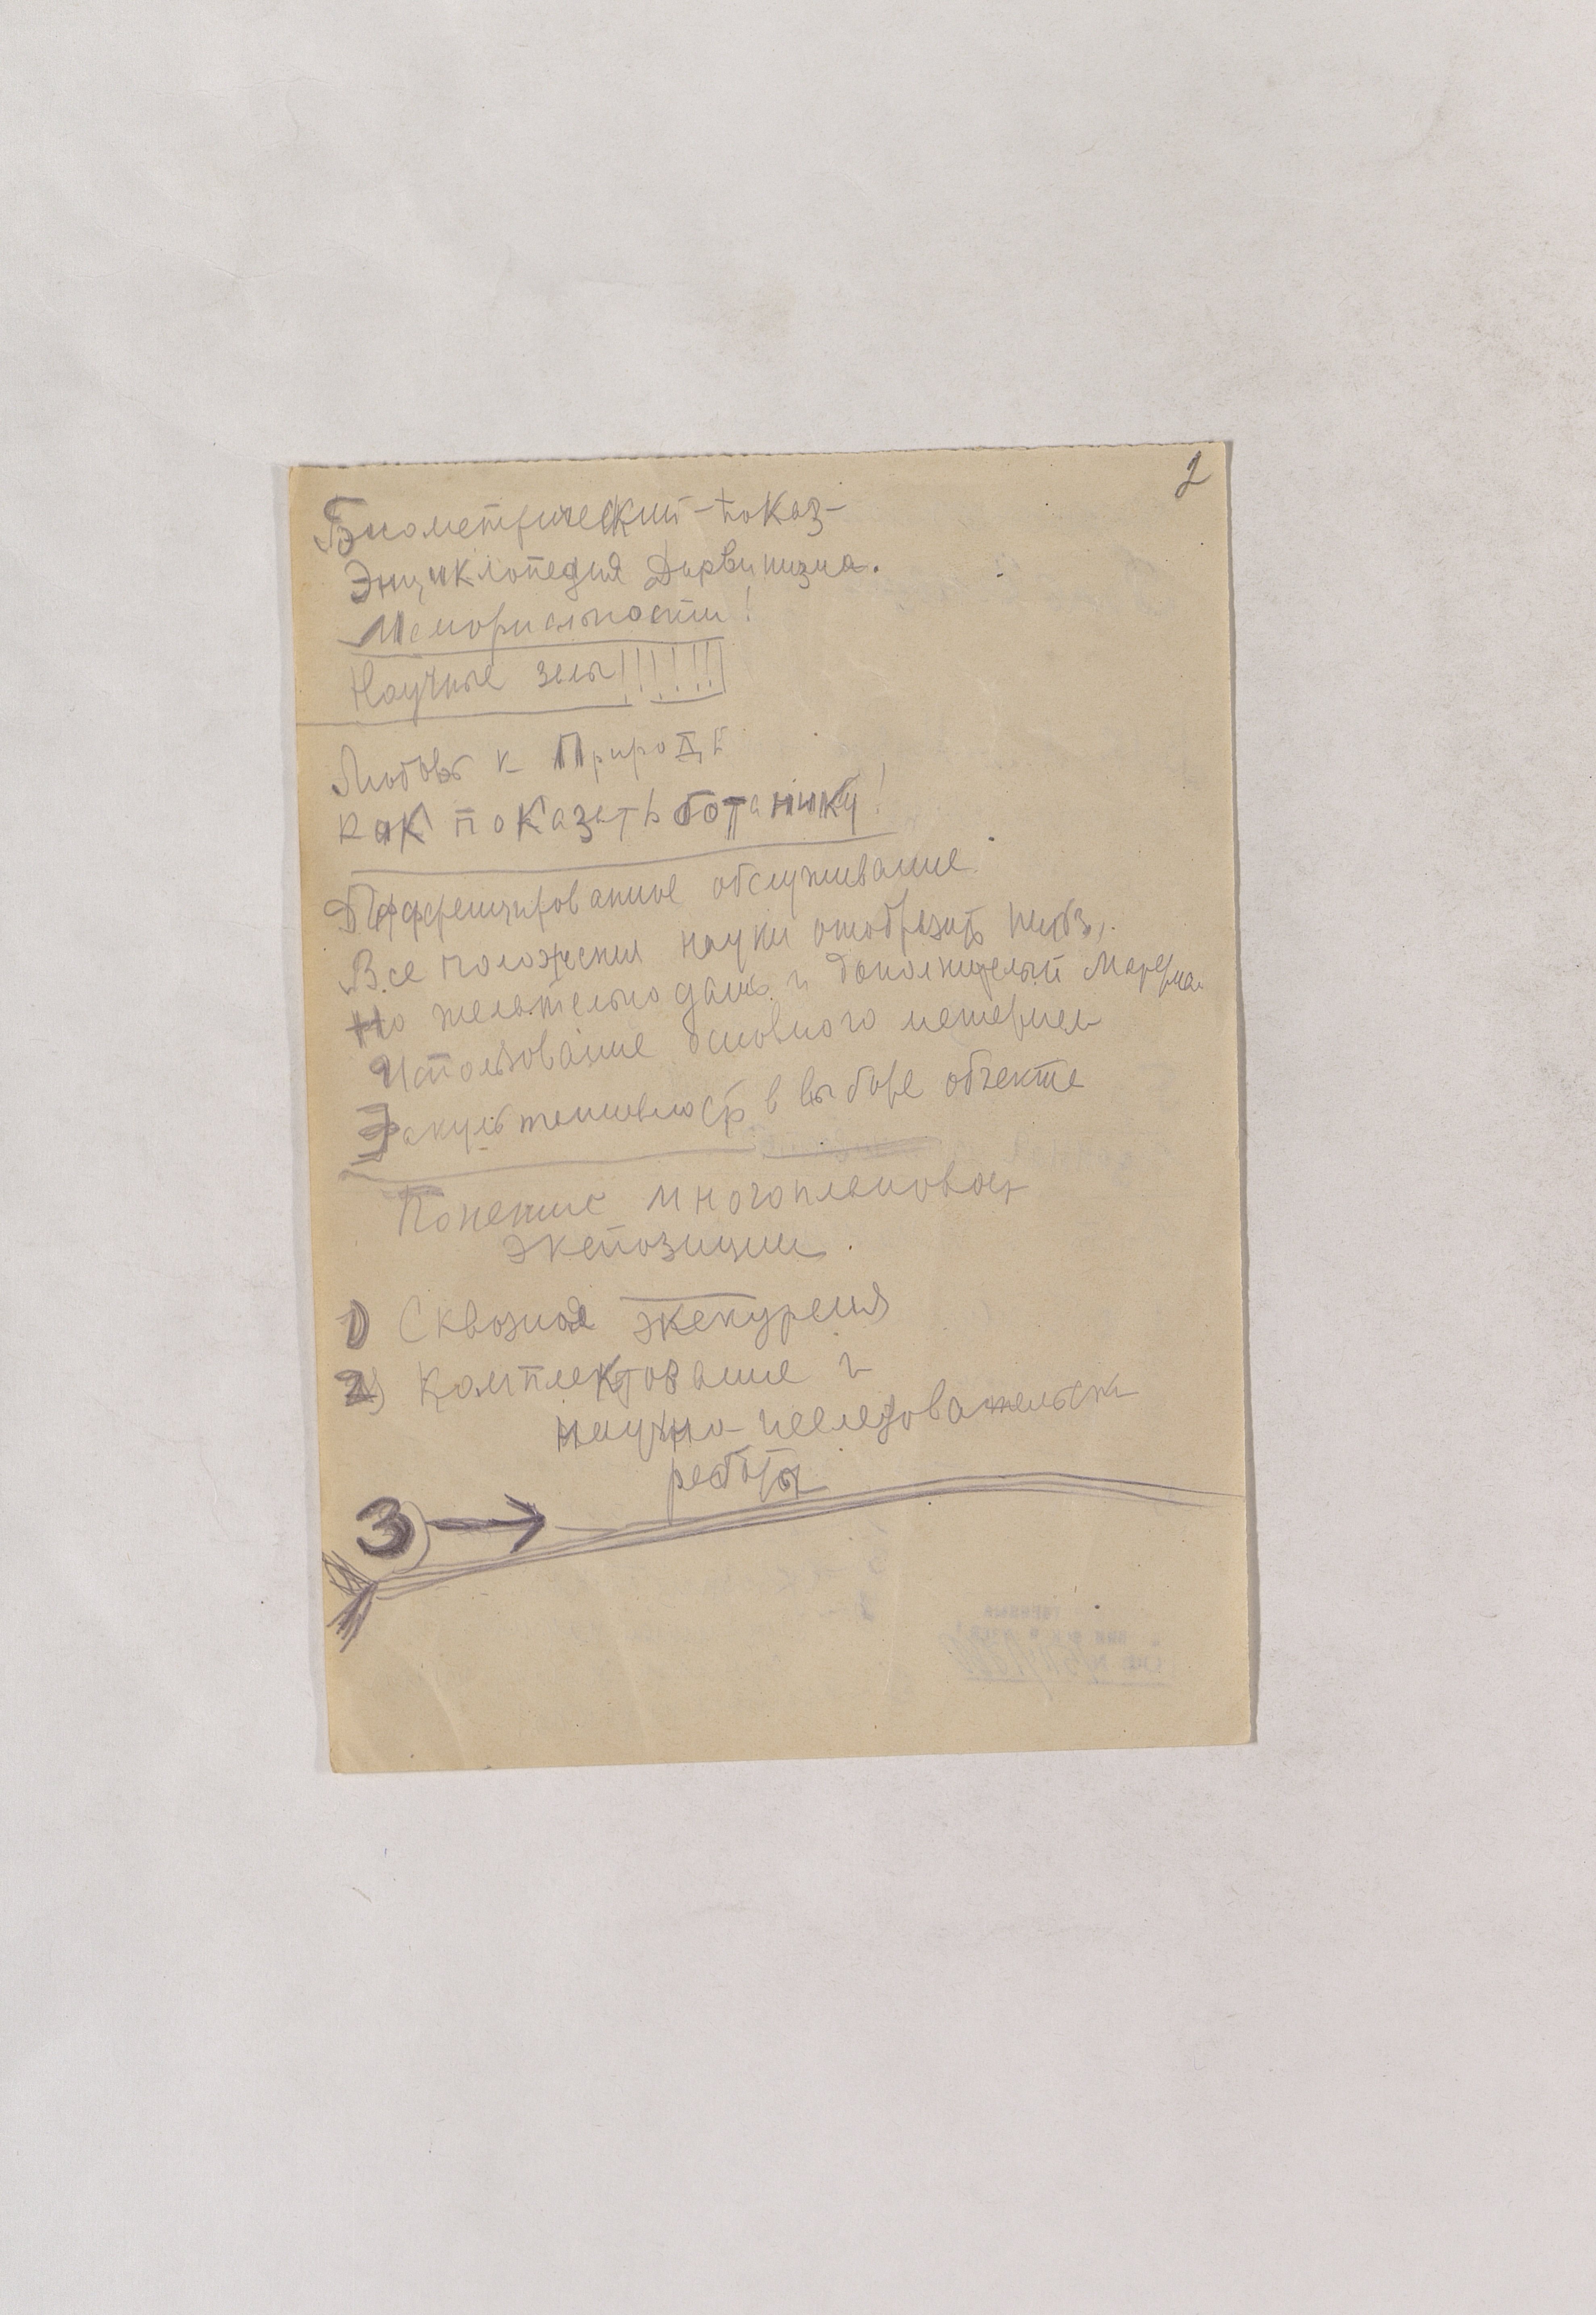 2
Биометрический – показ –
Энциклопедия Дарвинизма.
Мемориальности!
Научные залы!!!!!!
Любовь к Природе
как показать ботанику!
Дифференцированное обслуживание
Все положения науки отобразить
Но желательно дать и дополнительный Материал
Использование основного материала
Факультативность в выборе объекта
Понятие многоплановой
экспозиции.
1) Сквозная экскурсия
2) Комплектование и
научно-исследовательск
работы
3 →